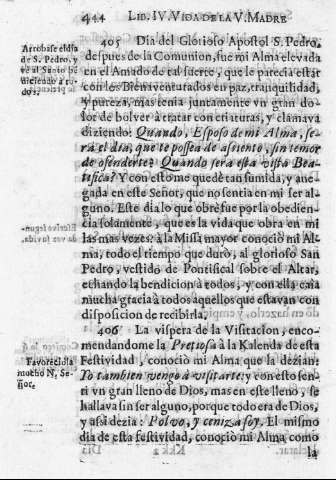 444 LIB. IV. VIDA DE LA V. MADRE
Arrobase el dia
de S. Pedro, y
ve al Santo be
diciendo a to-
dos.
405 Dia del Glorioso Apostol S. Pedro,
despues de la Comunion, fue mi Alma elevada
en el Amado de tal suerte, que le parecia estar
con los Bienaventurados en paz, tranquilidad,
y pureza, mas tenia juntamente vn gran do-
lor de bolver à tratar con criaturas, y clamava
diziendo: Quando, Esposo de mi Alma, se-
rà el dia, que te possea de assiento, sin temor
de ofenderte? Quando serà esta vista Bea-
tifica? Y con esto me quedè tan sumida, y ane-
gada en este Señor, que no sentia en mi ser al-
guno. Este dia lo que obrè fue por la obedien-
cia solamente, que es la vida que obra en mi
las mas vezes: à la Missa mayor conociò mi Al-
ma, todo el tiempo que durò, al glorioso San
Pedro, vestido de Pontifical sobre el Altar,
echando la bendicion à todos, y con ella caia
mucha gracia à todos aquellos que estavan con
disposicion de recibirla.
Favorecióla
mucho N. Se-
ñor.
406 La vispera de la Visitacion, enco-
mendandome la Preciosa à la Kalenda de esta
Festividad, conociò mi Alma que la dezian:
Yo tambien vengo à visitarte: y con esto sen-
tì vn gran lleno de Dios, mas en este lleno, se
hallava sin ser alguno, porque todo era de Dios,
y assi dezia: Polvo, y ceniza soy. El mismo
dia de esta festividad, conociò mi Alma como
Kkk 2 la